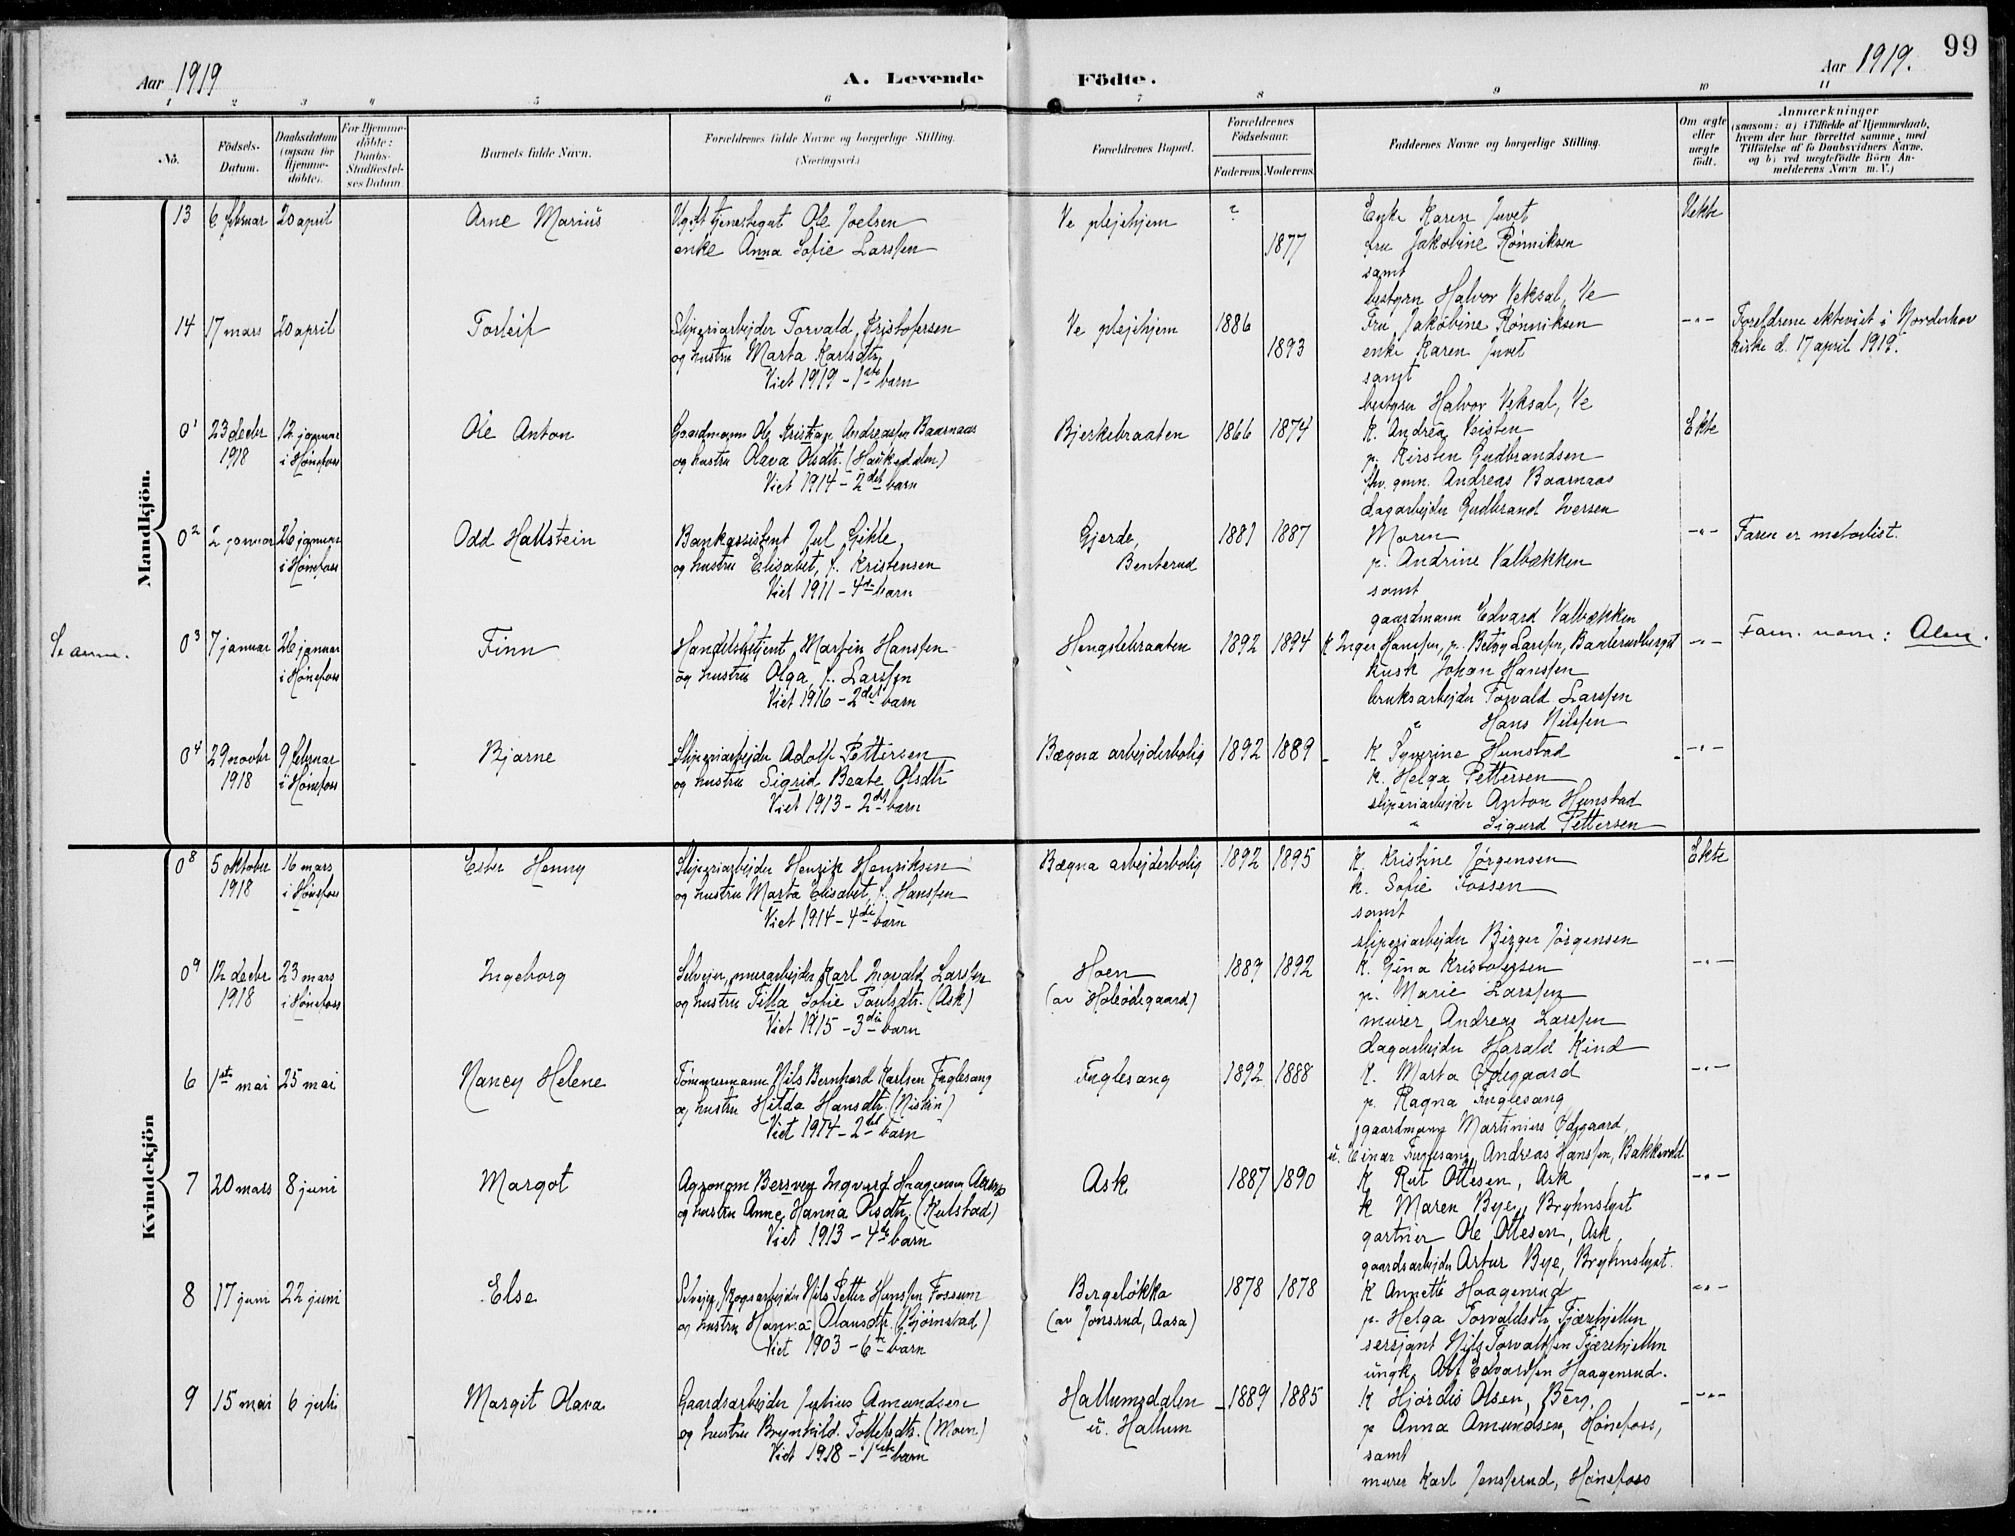 99
Aar 1919
A. Levende
Födte.
Aar 1919.
1 2 3 4 5 6 7 8 9 10 11
No.
Födsels-
Datum.
Daabsdatum
(ogsaa for
Hjemme-
döbte).
For Hjemme-
döbte:
Daabs-
Stadfæstel-
ses Datum.
Barnets fulde Navn.
Forældrenes fulde Navne og borgerlige Stilling.
(Næringsvei.)
Forældrenes Bopæl.
Forældrenes
Födselsaar.
Faderens. Moderens.
Faddernes Navne og borgerlige Stilling.
Om ægte
eller
uægte
født.
Anmærkninger
(saasom: a) i Tilfælde af Hjemmedaab,
hvem der har forrettet samme, med
Tilföielse af to Daabsvidners Navne,
og b) ved uægtefödte Börn An-
melderens Navn m. V.)
Mandkjön.
13 6 februar 20 april
Arne Marius
Ole Joelsen
enke Anna Sofie Larssen
Ve plejehjem
1877
Enke Karen Juvet
fru Jakobine Rønniksen
samt
bestyrer Halvor Veksal, Ve
Uekte
14 17 mars 20 april
Torleif
Sliperiarbejder Torvald Kristofersen
og hustru Marta Karlsdtr.
Viet 1919 - 1ste barn
Ve plejehjem
1886
1893
Fru Jakobine Rønniksen
enke Karen Juvet
samt
bestyrer Halvor Veksal, Ve
-"-
Foreldrene ekteviet i Norderhov
kirke d. 17 april 1919.
01 23 decbr 12 januar
1918 i Hønefoss
Ole Anton
Gaardmann Ole Kristian Andreassen Baarnaas
og hustru Olava Olsdtr. (Haukedalen)
Viet 1914 - 2det barn
Bjerkebraaten
1866 1874
K. Andrea Veisten
p. Kirsten Gudbrandsen
fhv. gmn. Andreas Baarnaas
dagarbejder Gudbrand Iversen
Ekte
02 2 januar 26 januar
i Hønefoss
Odd Hallstein
Bankassistent Jul Gikle,
og hustru Elisabet, f. Kristensen
Viet 1911 - 4de barn
Gjerde,
Benterud
1881 1887
Moren
p. Andrine Valbækken
samt
gaardmann Edvard Valbækken
-"-
Faren er metodist.
03 7 januar 26 januar
i Hønefoss
Finn
Handelsbetjent Martin Hanssen
og hustru Olga, f. Larssen
Viet 1916 - 2det barn
Hengslebraaten
1892 1894
K Inger Hanssen, p. Betzy Larssen, Baalerudberget
kusk Johan Hanssen
bruksarbejder Torvald Larssen
" Hans Nilssen
-"-
Fam. navn:
04 29 novbr 9 februar
1918 i Hønefoss
Bjarne
Sliperiarbejder Adolf Pettersen
og hustru Sigrid Beate Olsdtr
Viet 1913 - 2det barn
Bægna arbejderbolig
1892 1889
K Syverine Hunstad
k. Helga Pettersen
sliperiarbejder Anton Hunstad
" Sigurd Pettersen
-"-
Kvindekjön
08 5 oktober 16 mars
1918 i Hønefoss
Ester Henny
Sliperiarbejder Henrik Henriksen
og hustru Marta Elisabet, f. Hanssen
Viet 1914 - 4de barn
Bægna arbejderbolig
1892 1895
K Kristine Jørgensen
k. Sofie Fossen
samt
sliperiarbejder Birger Jørgensen
Ekte
09 12 decbr 23 mars
1918 i Hønefoss
Ingeborg
Selvejer, murarbejder Karl Ingvald Larssen
og hustru Tilla Sofie Paulsdtr. (Ask)
Viet 1915 - 3die barn
Hoen
(av Holeødegaard)
1889 1892
K. Gina Kristofersen
p. Marie Larssen
murer Andreas Larssen
dagarbejder Harald Kind
-"-
6 1ste mai 25 mai
Nancy Helene
Tømmermann Nils Bernhard Karlsen Fuglesang
og hustru Hilda Hansdtr. (Niskin)
Viet 1914 - 2det barn
Fuglesang
1892 1888
K. Marta Ødegaard
p. Ragna Fuglesang
gaardmann Martinius Ødegaard,
u. Einar Fuglesang, Andreas Hanssen, Bakkevold
-"-
7 20 mars 8 juni
Margot
Agronom Bersveg Ingvard Haagensen
og hustru Anne Hanna Olsdtr. (Kulstad)
Viet 1913 - 4de barn
Ask
1887 1890
K Rut Ottesen, Ask
k Maren Bye, Bryhnslyst
gartner Ole Ottesen, Ask
gaardsarbejder Artur Bye, Bryhnslyst.
-"-
8 17 juni 22 juni
Else
Selvejer, skogsarbejder Nils Petter Hanssen Fossum
og hustru Hanna Olausdtr. (Bjørnstad)
Viet 1903 - 6te barn
Bergeløkka
(av Jonsrud, Aasa)
1878 1878
K Annette Haagensrud
p. Helga Torvaldsdtr. Fjærehjellen
sersjant Nils Torvaldsen Fjærehjellen
ungk. Alf Edvardsen Haagensrud.
-"-
9 15 mai 6 juli
Margit Olava
Gaardsarbejder Julius Amundsen
og hustru Brynhild Tollefsdtr. (Moen)
Viet 1918 - 1ste barn
Hallumsdalen
u. Hallum
1889 1885
K Hjørdis Olsen, Berg.
p Anna Amundsen, Hønefoss,
samt
murer Karl Jensserud, Hønefoss
-"-